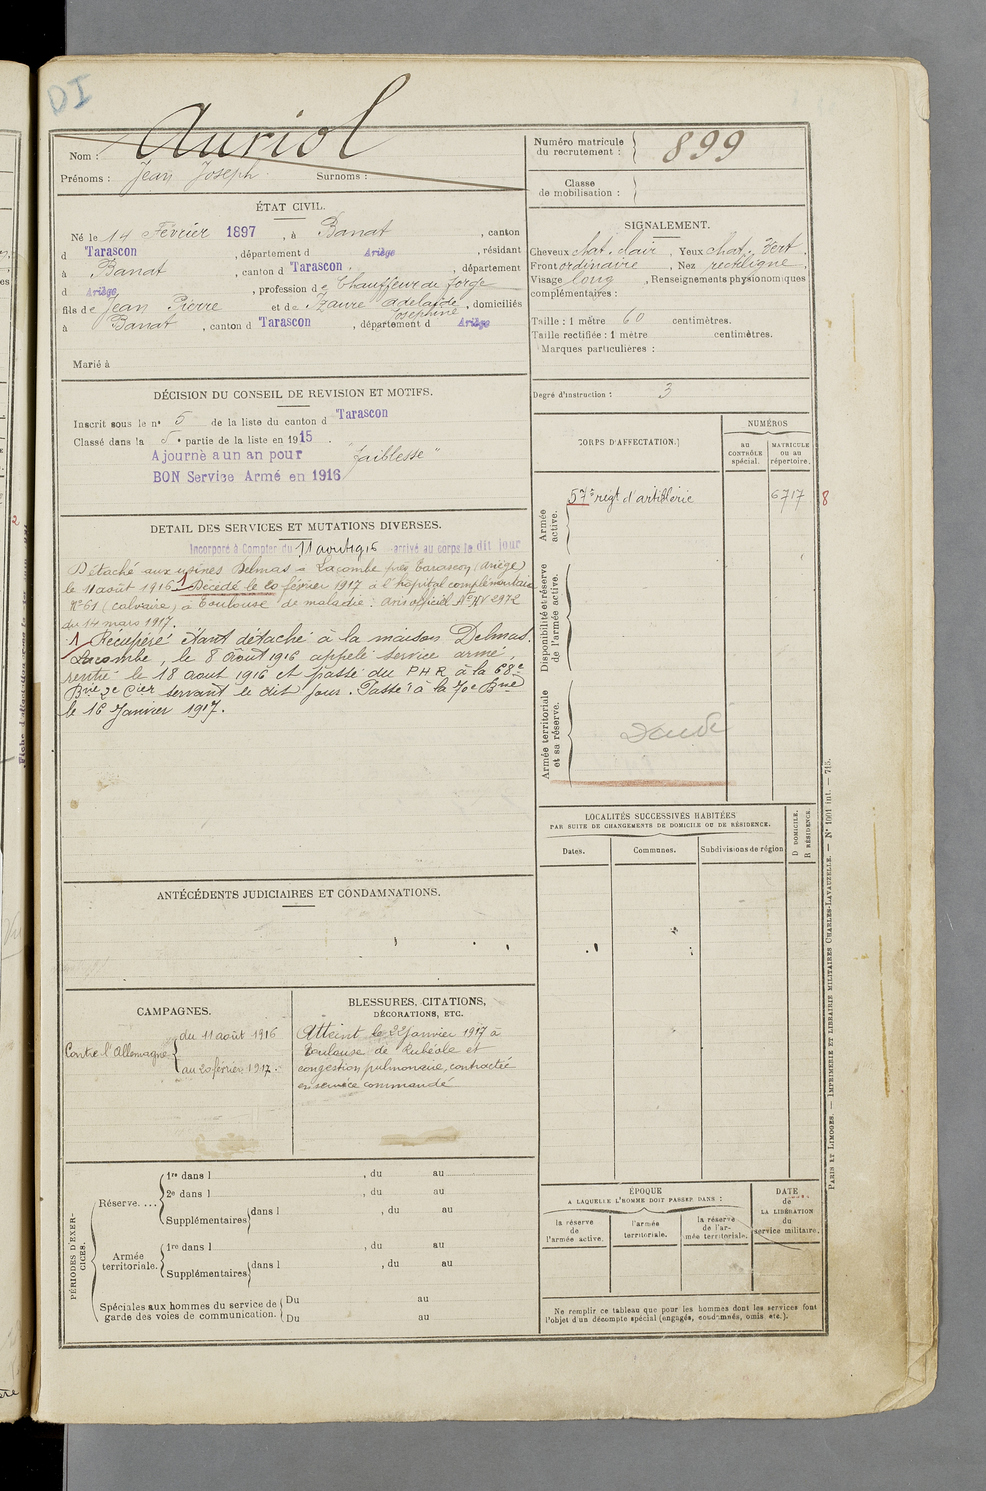 DI
Nom : Auriol
Prénoms : Jean Joseph Surnoms :
Numéro matricule du recrutement : 899
Classe de mobilisation :
ÉTAT CIVIL.
Né le 14 Février 1897, à Banat, canton
d Tarascon, département d Ariège, résidant
à Banat, canton d Tarascon, département
d Ariège, profession de Chauffeur de forge
fils de Jean Pierre et de Zaure Adelaïde Joséphine, domiciliés
à Banat, canton d Tarascon, département d Ariège
Marié à
SIGNALEMENT.
Cheveux chat. clair, Yeux chat. vert
Front ordinaire, Nez rectiligne
Visage long, Renseignements physionomiques
complémentaires :
Taille : 1 mètre 60 centimètres.
Taille rectifiée : 1 mètre centimètres.
Marques particulières :
Degré d'instruction : 3
DÉCISION DU CONSEIL DE REVISION ET MOTIFS.
Inscrit sous le n° 5 de la liste du canton d Tarascon
Classé dans la 5e partie de la liste en 1915.
Ajourné à un an pour "faiblesse"
BON Service Armé en 1916
CORPS D'AFFECTATION.
NUMÉROS
au CONTRÔLE spécial.
MATRICULE ou au répertoire.
Armée active.
57e regt d'artillerie 6717 8
Disponibilité et réserve de l'armée active.
Armée territoriale et sa réserve.
DÉTAIL DES SERVICES ET MUTATIONS DIVERSES.
Incorporé à Compter du 11 août 1916 arrivé au corps le dit jour
Détaché aux usines Delmas - Lacombe près Tarascon (Ariège)
le 11 août 1916. 1 Décédé le 20 février 1917 à l'hôpital complémentaire
N° 61 (Calvaire) à Toulouse de maladie. avis officiel N° AV 2972
du 14 mars 1917.
1 Récupéré étant détaché à la maison Delmas
Lacombe, le 8 Août 1916 appelé service armé,
rentré le 18 aout 1916 et passé du PHR à la 68e
Brie 2e Cier servant le dit jour. Passé à la 70e Brie
le 16 Janvier 1917.
LOCALITÉS SUCCESSIVES HABITÉES
PAR SUITE DE CHANGEMENTS DE DOMICILE OU DE RÉSIDENCE.
Dates. Communes. Subdivisions de région
D DOMICILE.
R RÉSIDENCE.
ANTÉCÉDENTS JUDICIAIRES ET CONDAMNATIONS.
CAMPAGNES.
Contre l'Allemagne
du 11 août 1916
au 20 février 1917.
BLESSURES, CITATIONS,
DÉCORATIONS, ETC.
Atteint le 22 Janvier 1917 à
Toulouse de Rubéole et
congestion pulmonaire, contractée
en service commandé
PÉRIODES D'EXERCICES.
Réserve....
1re dans l , du au
2e dans l , du au
Supplémentaires dans l , du au
Armée territoriale.
1re dans l , du au
Supplémentaires dans l , du au
Spéciales aux hommes du service de
garde des voies de communication.
Du au
Du au
ÉPOQUE
A LAQUELLE L'HOMME DOIT PASSER DANS :
la réserve de l'armée active.
l'armée territoriale.
la réserve de l'armée territoriale.
DATE de LA LIBÉRATION du service militaire.
Ne remplir ce tableau que pour les hommes dont les services font
l'objet d'un décompte spécial (engagés, condamnés, omis etc.).
PARIS ET LIMOGES. — IMPRIMERIE ET LIBRAIRIE MILITAIRES CHARLES-LAVAUZELLE. — N° 1001 int. — 715.